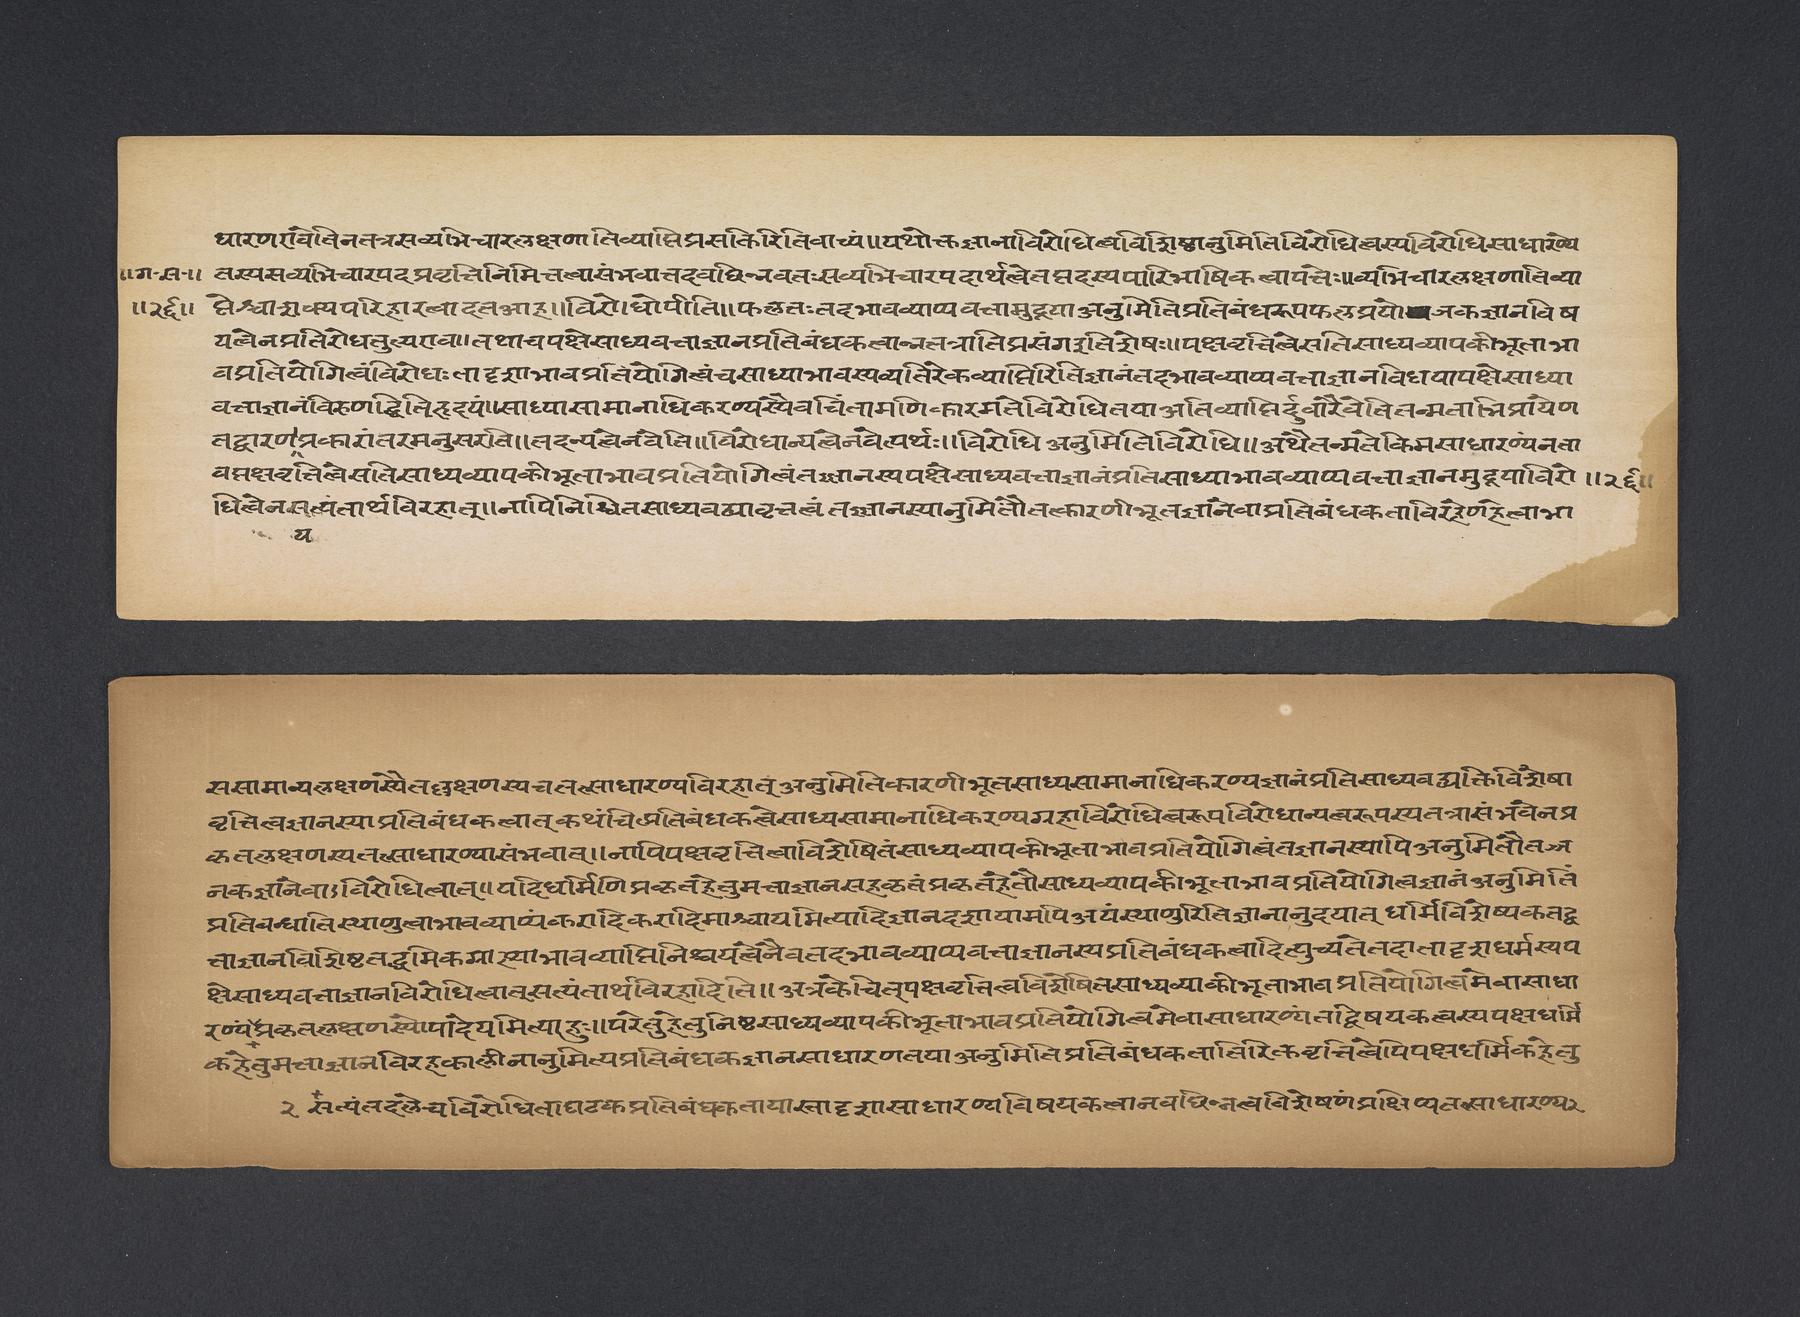 धारणएवेतिनतत्रसव्यभिचारलक्षणातिव्याप्तिप्रसक्तिरितिवाच्यं॥यथोक्तज्ञानाविरोधित्वविशिष्टानुमितिविरोधित्वस्यविरोधिसाधारण्ये
॥ग॰स॰॥ तस्यसव्यभिचारपदप्रवृत्तिनिमित्तत्वासंभवात्तदवछिन्नवतःसव्यभिचारपदार्थत्वेतत्पदस्यपारिभाषिकत्वापत्तेः॥व्यभिचारलक्षणातिव्या
॥२६॥ प्तेश्चाशक्यपरिहारत्वादतआह॥विरोधोपीति॥फलतःतदभावव्याप्यवत्तामुद्रया अनुमितिप्रतिबंधरूपफलप्रयोजकज्ञानविष
यत्वेनप्रतिरोधतुल्यएव॥तथाचपक्षेसाध्यवत्ताज्ञानप्रतिबंधकत्वान्नतत्रातिप्रसंगइतिशेषः॥पक्षवृत्तित्वेसतिसाध्यव्यापकीभूताभा
वप्रतियोगित्वंविरोधःतादृशाभावप्रतियोगित्वंचसाध्याभावस्यव्यतिरेकव्याप्तिरितिज्ञानंतदभावव्याप्यवत्ताज्ञानविधयापक्षेसाध्या
वत्ताज्ञानंविरुणद्धीतिहृदयं॥साध्यासामानाधिकरण्यस्यैवचिंतामणिकारमतेविरोधितयाअतिव्याप्तिर्दुर्वारैवेतितन्मताभिप्रायेण
तद्वारणप्रकारांतरमनुसरति॥तदन्यत्वेनवेति॥विरोधान्यत्वेनवेत्यर्थः॥विरोधि अनुमितिविरोधि॥अथैतन्मतेकिमसाधारण्यंनता
वत्पक्षवृत्तित्वेसतिसाध्यव्यापकीभूताभावप्रतियोगित्वंतज्ज्ञानस्यपक्षेसाध्यवत्ताज्ञानंप्रतिसाध्याभावव्याप्यवत्ताज्ञानमुद्रयाविरो ॥२६॥
धित्वेनसत्यंतार्थविरहात्॥नापिनिश्चितसाध्यवद्व्यावृत्तत्वं तज्ज्ञानस्यानुमितौतत्कारणीभूतज्ञानेवाप्रतिबंधकताविरहेणहेत्वाभा
य
ससामान्यलक्षणस्यैतल्लक्षणस्यचतत्साधारण्यविरहात् अनुमितिकारणीभूतसाध्यसामानाधिकरण्यज्ञानंप्रतिसाध्यवद्व्यक्तिविशेषा
वृत्तित्वज्ञानस्याप्रतिबंधकत्वात् कथंचित्प्रतिबंधकत्वेसाध्यसामानाधिकरण्यग्रहाविरोधित्वरूपविरोधान्यत्वरूपस्यतत्रासंभवेनप्र
कृतलक्षणस्यतत्साधारण्यासंभवात्॥नापिपक्षवृत्तित्वाविशेषितंसाध्यव्यापकीभूताभावप्रतियोगित्वंतज्ज्ञानस्यापिअनुमितौतज्ज
नकज्ञानेवाऽविरोधित्वात्॥यदिधर्मिणिप्रकृतहेतुमत्ताज्ञानसहकृतंप्रकृतहेतौसाध्यव्यापकीभूताभावप्रतियोगित्वज्ञानंअनुमितिं
प्रतिबन्धातिस्थाणुत्वाभावव्याप्यंकरादिकरादिमांश्चायमित्यादिज्ञानदशायामपिअयंस्थाणुरितिज्ञानानुदयात् धर्मिविशेष्यकतद्व
त्ताज्ञानविशिष्टतद्धर्मिकग्राह्याभावव्याप्तिनिश्चयत्वेनैवतदभावव्याप्यवत्ताज्ञानस्यप्रतिबंधकत्वादित्युच्यतेतदातादृशधर्मस्यप
क्षेसाध्यवत्ताज्ञानविरोधित्वात्सत्यंतार्थविरहादिति॥अत्रकेचित्पक्षवृत्तित्वविशेषितसाध्यव्याकीभूताभावप्रतियोगित्वमेवासाधा
रण्यंप्रकृतलक्षणस्योपादेयमित्याहुः॥परेतुहेतुनिष्ठसाध्यव्यापकीभूताभावप्रतियोगित्वमेवासाधारण्यंतद्विषयकत्वस्यपक्षधर्मि
कहेतुमत्ताज्ञानविरहकालीनानुमित्यप्रतिबंधकज्ञानसाधारणतयाअनुमितिप्रतिबंधकतातिरिक्तवृत्तित्वेपिपक्षधर्मिकहेतु
२ सत्यंतदलेचविरोधिताघटकप्रतिबंधकतायास्तादृशासाधारण्यविषयकत्वानवछिन्नत्वविशेषणंप्रक्षिप्यतत्साधारण्यर